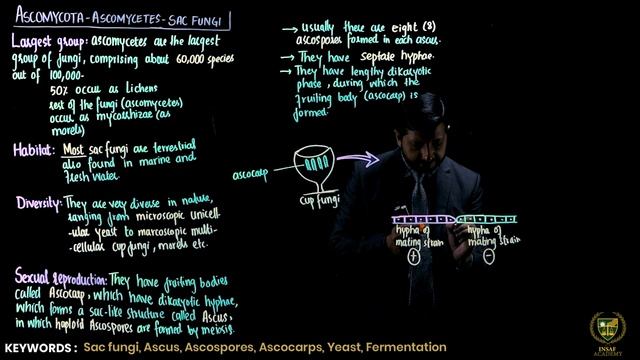 ASCOMYCOTA - ASCOMYCETES - SAC FUNGI
Largest group: ascomycetes are the largest
group of fungi, comprising about 60,000 species
out of 100,000-
50% occur as lichens
rest of the fungi (ascomycetes)
occur as mycorrhizae (as
morels)
Habitat: Most sac fungi are terrestrial
also found in marine and
fresh water.
Diversity: They are very diverse in nature,
ranging from microscopic unicell-
-ular yeast to marcoscopic multi-
-cellular cup fungi, morels etc.
Sexual reproduction: They have fruiting bodies
called Ascocarp, which have dikaryotic hyphae,
which forms a sac-like structure called Ascus,
in which haploid Ascospores are formed by meiosis.
→ usually there are eight (8)
ascospores formed in each ascus.
→ They have septate hyphae.
→ They have lengthy dikaryotic
phase, during which the
fruiting body (ascocarp) is
formed.
ascocarp
cup fungi
hypha of
mating strain
+
hypha of
mating strain
-
KEYWORDS : Sac fungi, Ascus, Ascospores, Ascocarps, Yeast, Fermentation
ENSAF
ACADEMY